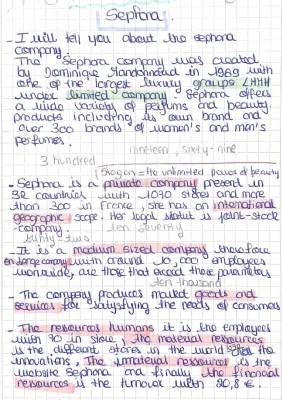 Sephora.
- I will tell you about the sephora
company.
The Sephora company was created
by Dominique Mandonnaud in 1969 with
one of the largest luxury groups LVMH
under limited company. Sephora offers
a wide variety of perfums and beauty
products including its own brand and
over 300 brands of women's and men's
perfumes.
nineteen, sixty-nine
3 hundred
Slogan = the unlimited power of beauty
- Sephora is a private company present in
32 countries with 1070 stores and more
than 300 in France, she has an international
geographic scope. Her legal statut is joint-stock
company.
ten seventy
- It is a medium sized company therefore
or large company with around 10,000 employees
worldwide, are those that exceed these parameters
ten thousand
- The company produces market goods and
services for satysfying the needs of consumers
- The ressources humans it is the employees
with 90 in store, the material ressources
is the different stores in the world and the
innovations, The immaterial ressources is the
website Sephora and finally the financial
ressources is the turnover with 20,8 €.